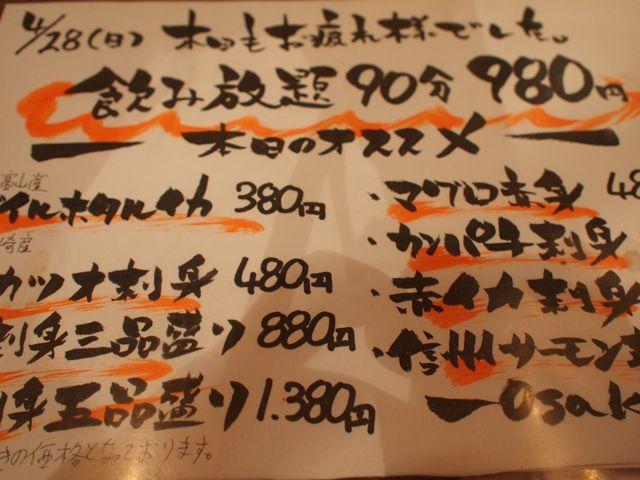 4/28(日) 本日もお疲れ様でした。
飲み放題 90分 980円
本日のオススメ
富山産
ボイルホタルイカ 380円
崎産
カツオ刺身 480円
刺身三品盛り 880円
刺身五品盛り 1.380円
きの価格となっております。
・マグロ赤身 48
・カンパチ刺身
・赤イカ刺身
・信州サーモン
Osak